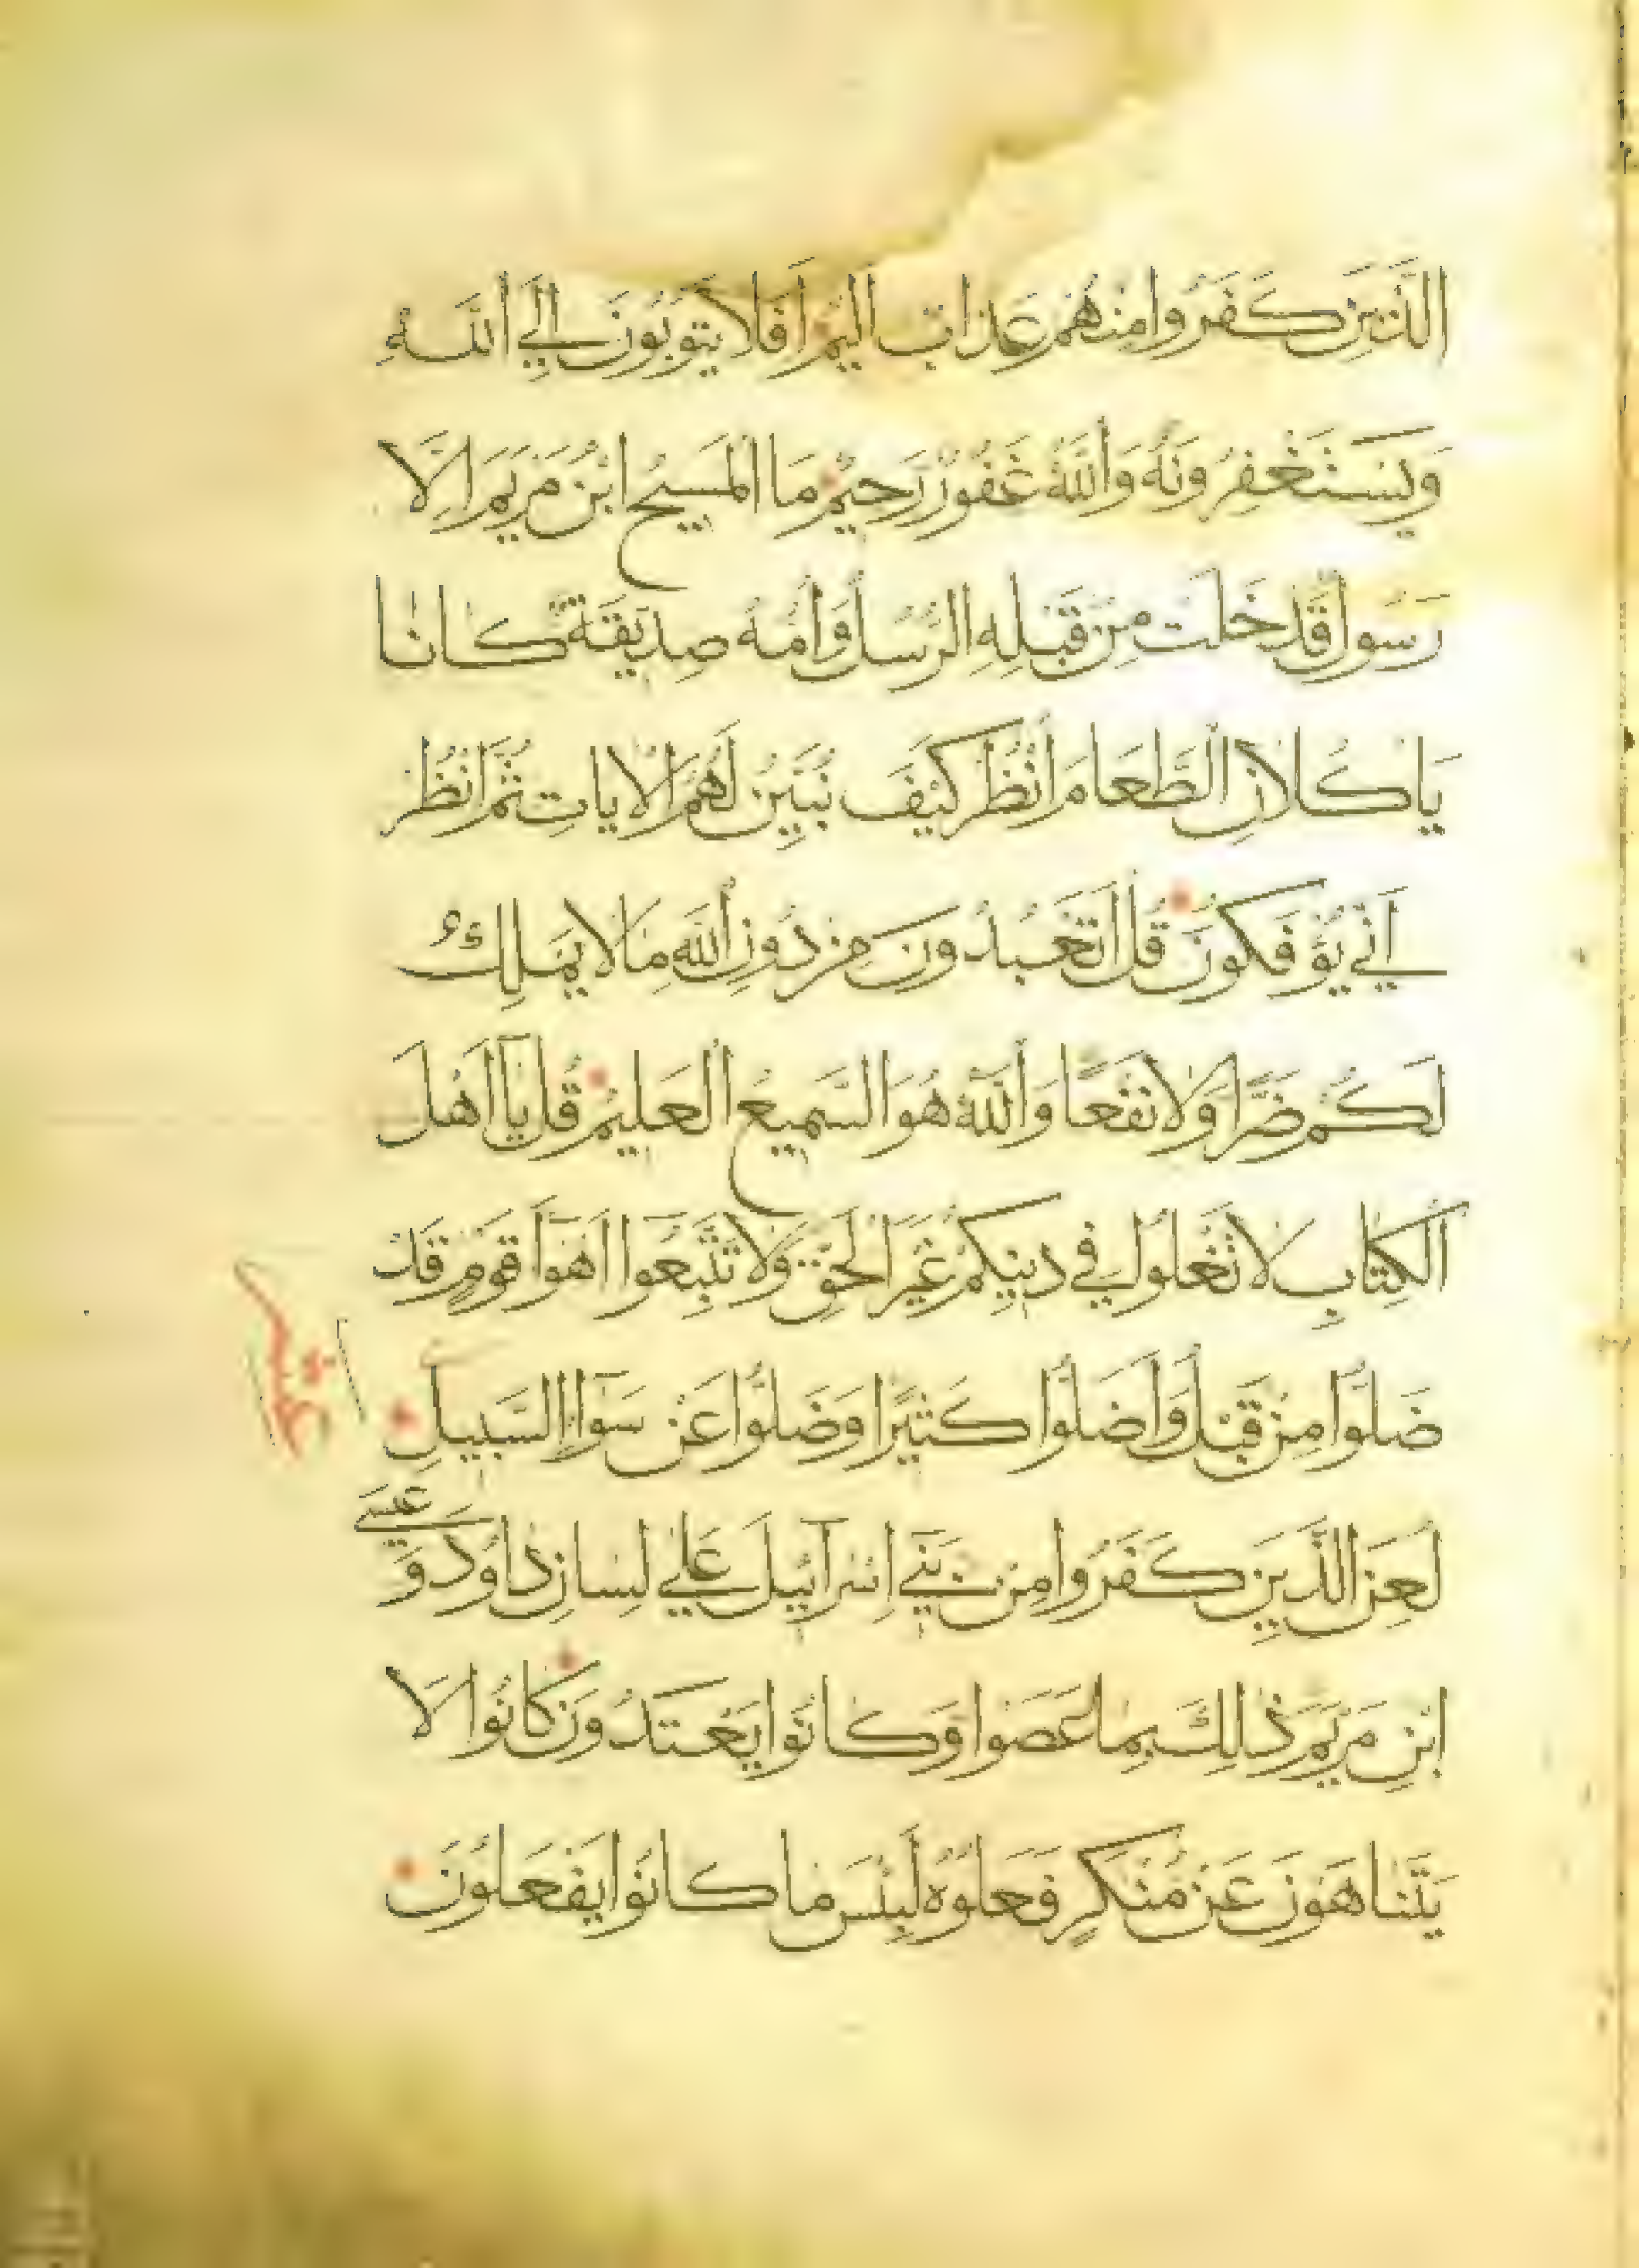 الَّذِينَ كَفَرُوا مِنْهُمْ عَذَابٌ اَلِيمٌ اَفَلَا يَتُوبُونَ اِلَي اللَّهِ
وَيَسْتَغْفِرُونَهُ وَاللَّهُ غَفُورٌ رَحِيمٌ مَا الْمَسِيحُ ابْنُ مَرْيَمَ اِلَّا
رَسُولٌ قَدْ خَلَتْ مِنْ قَبْلِهِ الرُّسُلُ وَاُمُّهُ صِدِّيقَةٌ كَانَا
يَاكُلَانِ الطَّعَامَ اُنْظُرْ كَيْفَ نُبَيِّنُ لَهُمُ الْاٰيَاتِ ثُمَّ انْظُرْ
اَنّٰي يُؤْفَكُونَ قُلْ اَتَعْبُدُونَ مِنْ دُونِ اللَّهِ مَا لَا يَمْلِكُ
لَكُمْ ضَرًّا وَلَا نَفْعًا وَاللَّهُ هُوَ السَّمِيعُ الْعَلِيمُ قُلْ يَا اَهْلَ
الْكِتَابِ لَا تَغْلُوا فِي دِينِكُمْ غَيْرَ الْحَقِّ وَلَا تَتَّبِعُوا اَهْوَآءَ قَوْمٍ قَدْ
ضَلُّوا مِنْ قَبْلُ وَاَضَلُّوا كَثِيرًا وَضَلُّوا عَنْ سَوَآءِ السَّبِيلِ
لُعِنَ الَّذِينَ كَفَرُوا مِنْ بَنِي اِسْرَآئِيلَ عَلٰي لِسَانِ دَاوُدَ وَعِيسَي
ابْنِ مَرْيَمَ ذٰلِكَ بِمَا عَصَوْا وَكَانُوا يَعْتَدُونَ كَانُوا لَا
يَتَنَاهَوْنَ عَنْ مُنْكَرٍ فَعَلُوهُ لَبِئْسَ مَا كَانُوا يَفْعَلُونَ